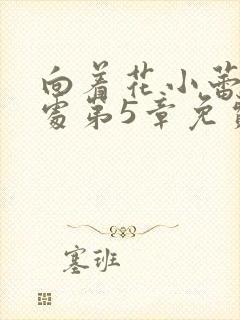 向着花小蕾
处第5章免费
塞班